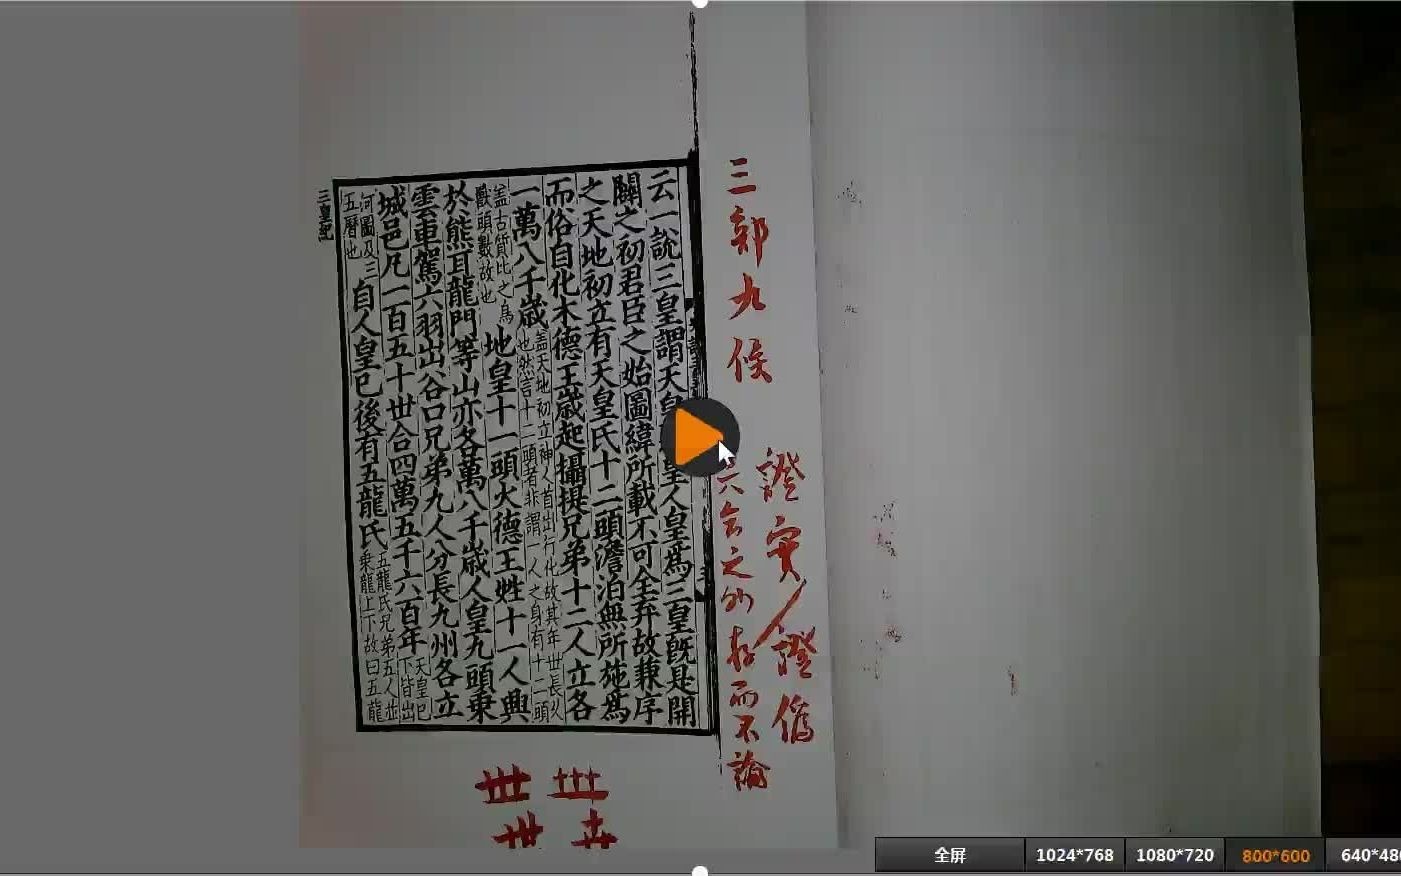 三郭九候
證實 證偽
六合之外存而不論
云一說三皇謂天皇
皇人皇爲三皇旣是開
闢之初君臣之始圖緯所載不可全弃故兼序
之天地初立有天皇氏十二頭澹泊無所施爲
而俗自化木德王歲起攝提兄弟十二人立各
一萬八千歲
蓋天地初立神人首出行化故其年世長久
也然言十二頭者非謂一人之身有十二頭
蓋古質比之鳥
獸頭數故也
地皇十一頭火德王姓十一人興
於熊耳龍門等山亦各萬八千歲人皇九頭乗
雲車駕六羽出谷口兄弟九人分長九州各立
城邑凡一百五十丗合四萬五千六百年
天皇已
下皆出
河圖及三
五曆也
自人皇已後有五龍氏
五龍氏兄弟五人並
乗龍上下故曰五龍
三皇紀
全屏
1024*768
1080*720
800*600
640*480